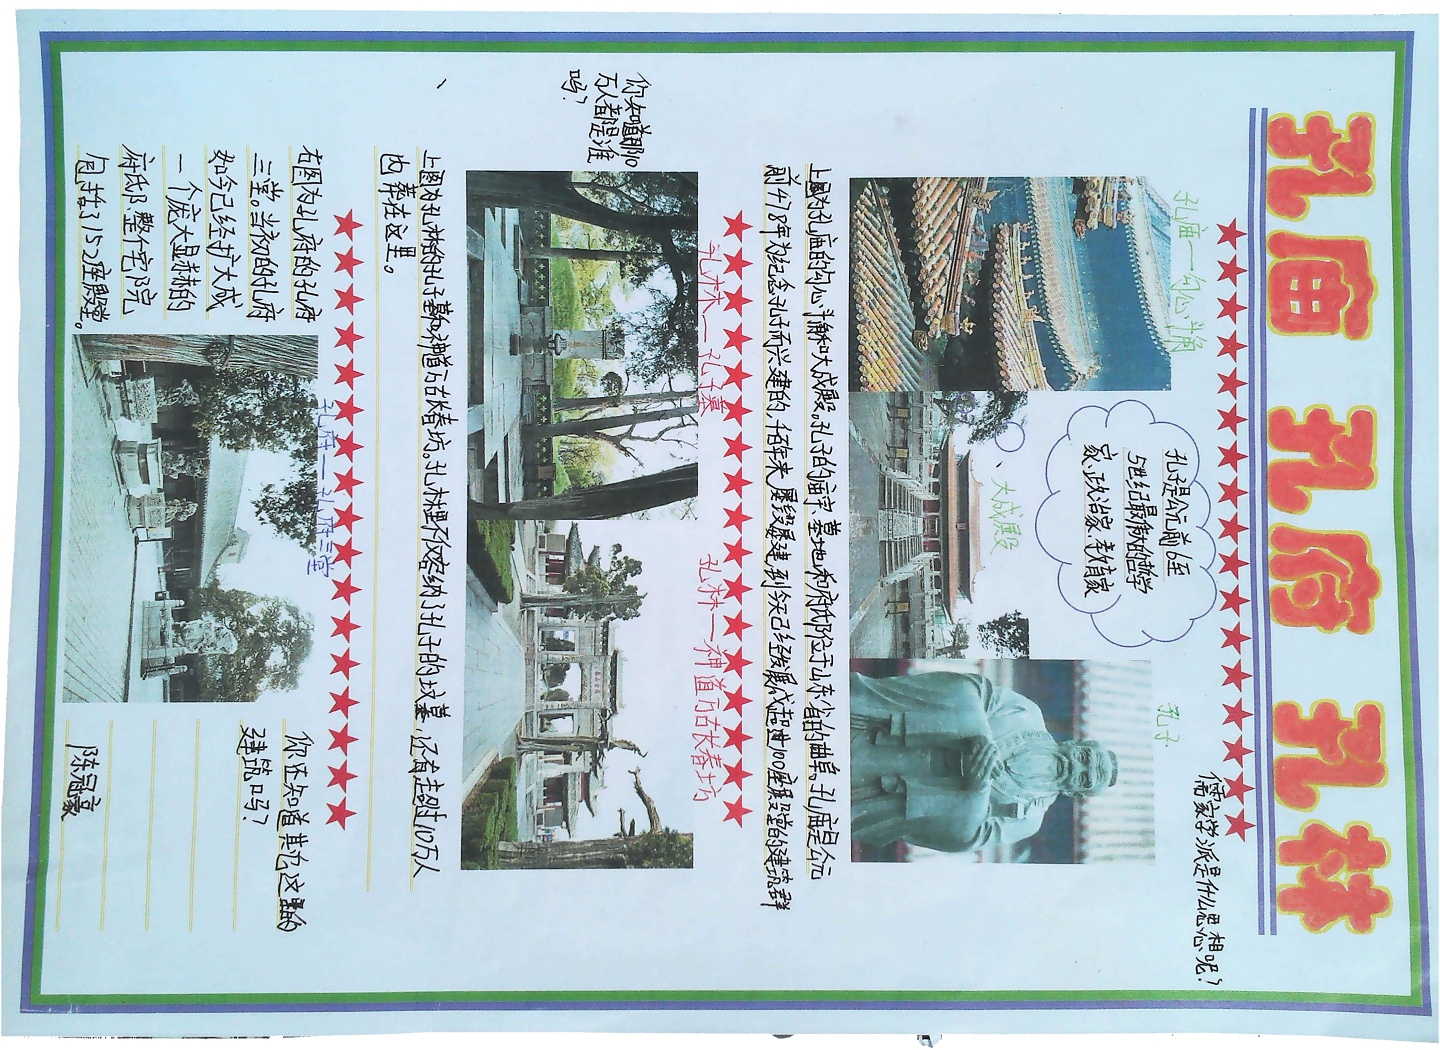 孔庙 孔府 孔林
儒家学派是什么思想呢?
孔庙一勾心斗角
孔子是公元前6至
5世纪最伟大的哲学
家、政治家、教育家
孔子
大成殿
上图为孔庙的勾心斗角和大成殿。孔子的庙宇、墓地和府邸位于山东省的曲阜。孔庙是公元
前478年为纪念孔子而兴建的,千百年来屡毁屡建,到今天已经发展成超过100座殿堂的建筑群
孔林一孔子墓
孔林一神道万古长春坊
你知道那10
万人都是谁
吗?
上图为孔林的孔子墓和神道万古长春坊。孔林里不仅容纳了孔子的坟墓,还有超过10万人
内葬在这里。
孔府一孔府三堂
右图为孔府的孔府
三堂。当初的孔府
如今已经扩大成
一个庞大显赫的
府邸、整个宅院
包括了152座殿堂。
你还知道其它这里的
建筑吗?
陈冠豪